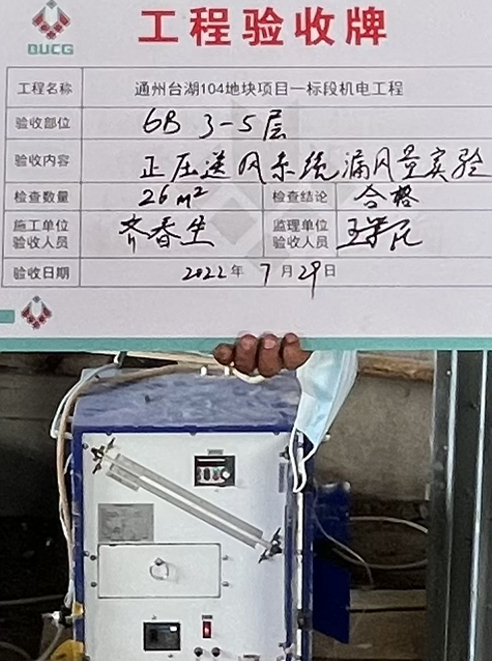 BUCG
工程验收牌
工程名称 通州台湖104地块项目一标段机电工程
验收部位 6B 3-5层
验收内容 正压送风系统漏风量实验
检查数量 26m² 检查结论 合格
施工单位验收人员 齐春生 监理单位验收人员
验收日期 2022年7月29日